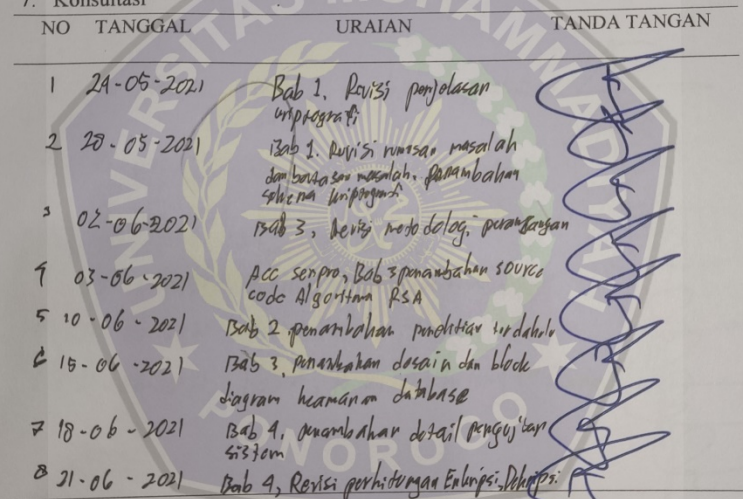 7. Konsultasi
NO TANGGAL URAIAN TANDA TANGAN
1 24-05-2021 Bab 1. Revisi penjelasan
kriptografi
2 28-05-2021 Bab 1. Revisi rumusan masalah
dan batasan masalah, penambahan
skema kriptografi
3 02-06-2021 Bab 3, Revisi metodologi perancangan
4 03-06-2021 Acc sempro, Bab 3 penambahan source
code Algoritma RSA
5 10-06-2021 Bab 2 penambahan penelitian terdahulu
6 15-06-2021 Bab 3, penambahan desain dan block
diagram keamanan database
7 18-06-2021 Bab 4, penambahan detail pengujian
sistem
8 21-06-2021 Bab 4, Revisi perhitungan Enkripsi, Dekripsi
UNIVERSITAS MUHAMMADIYAH
PONOROGO